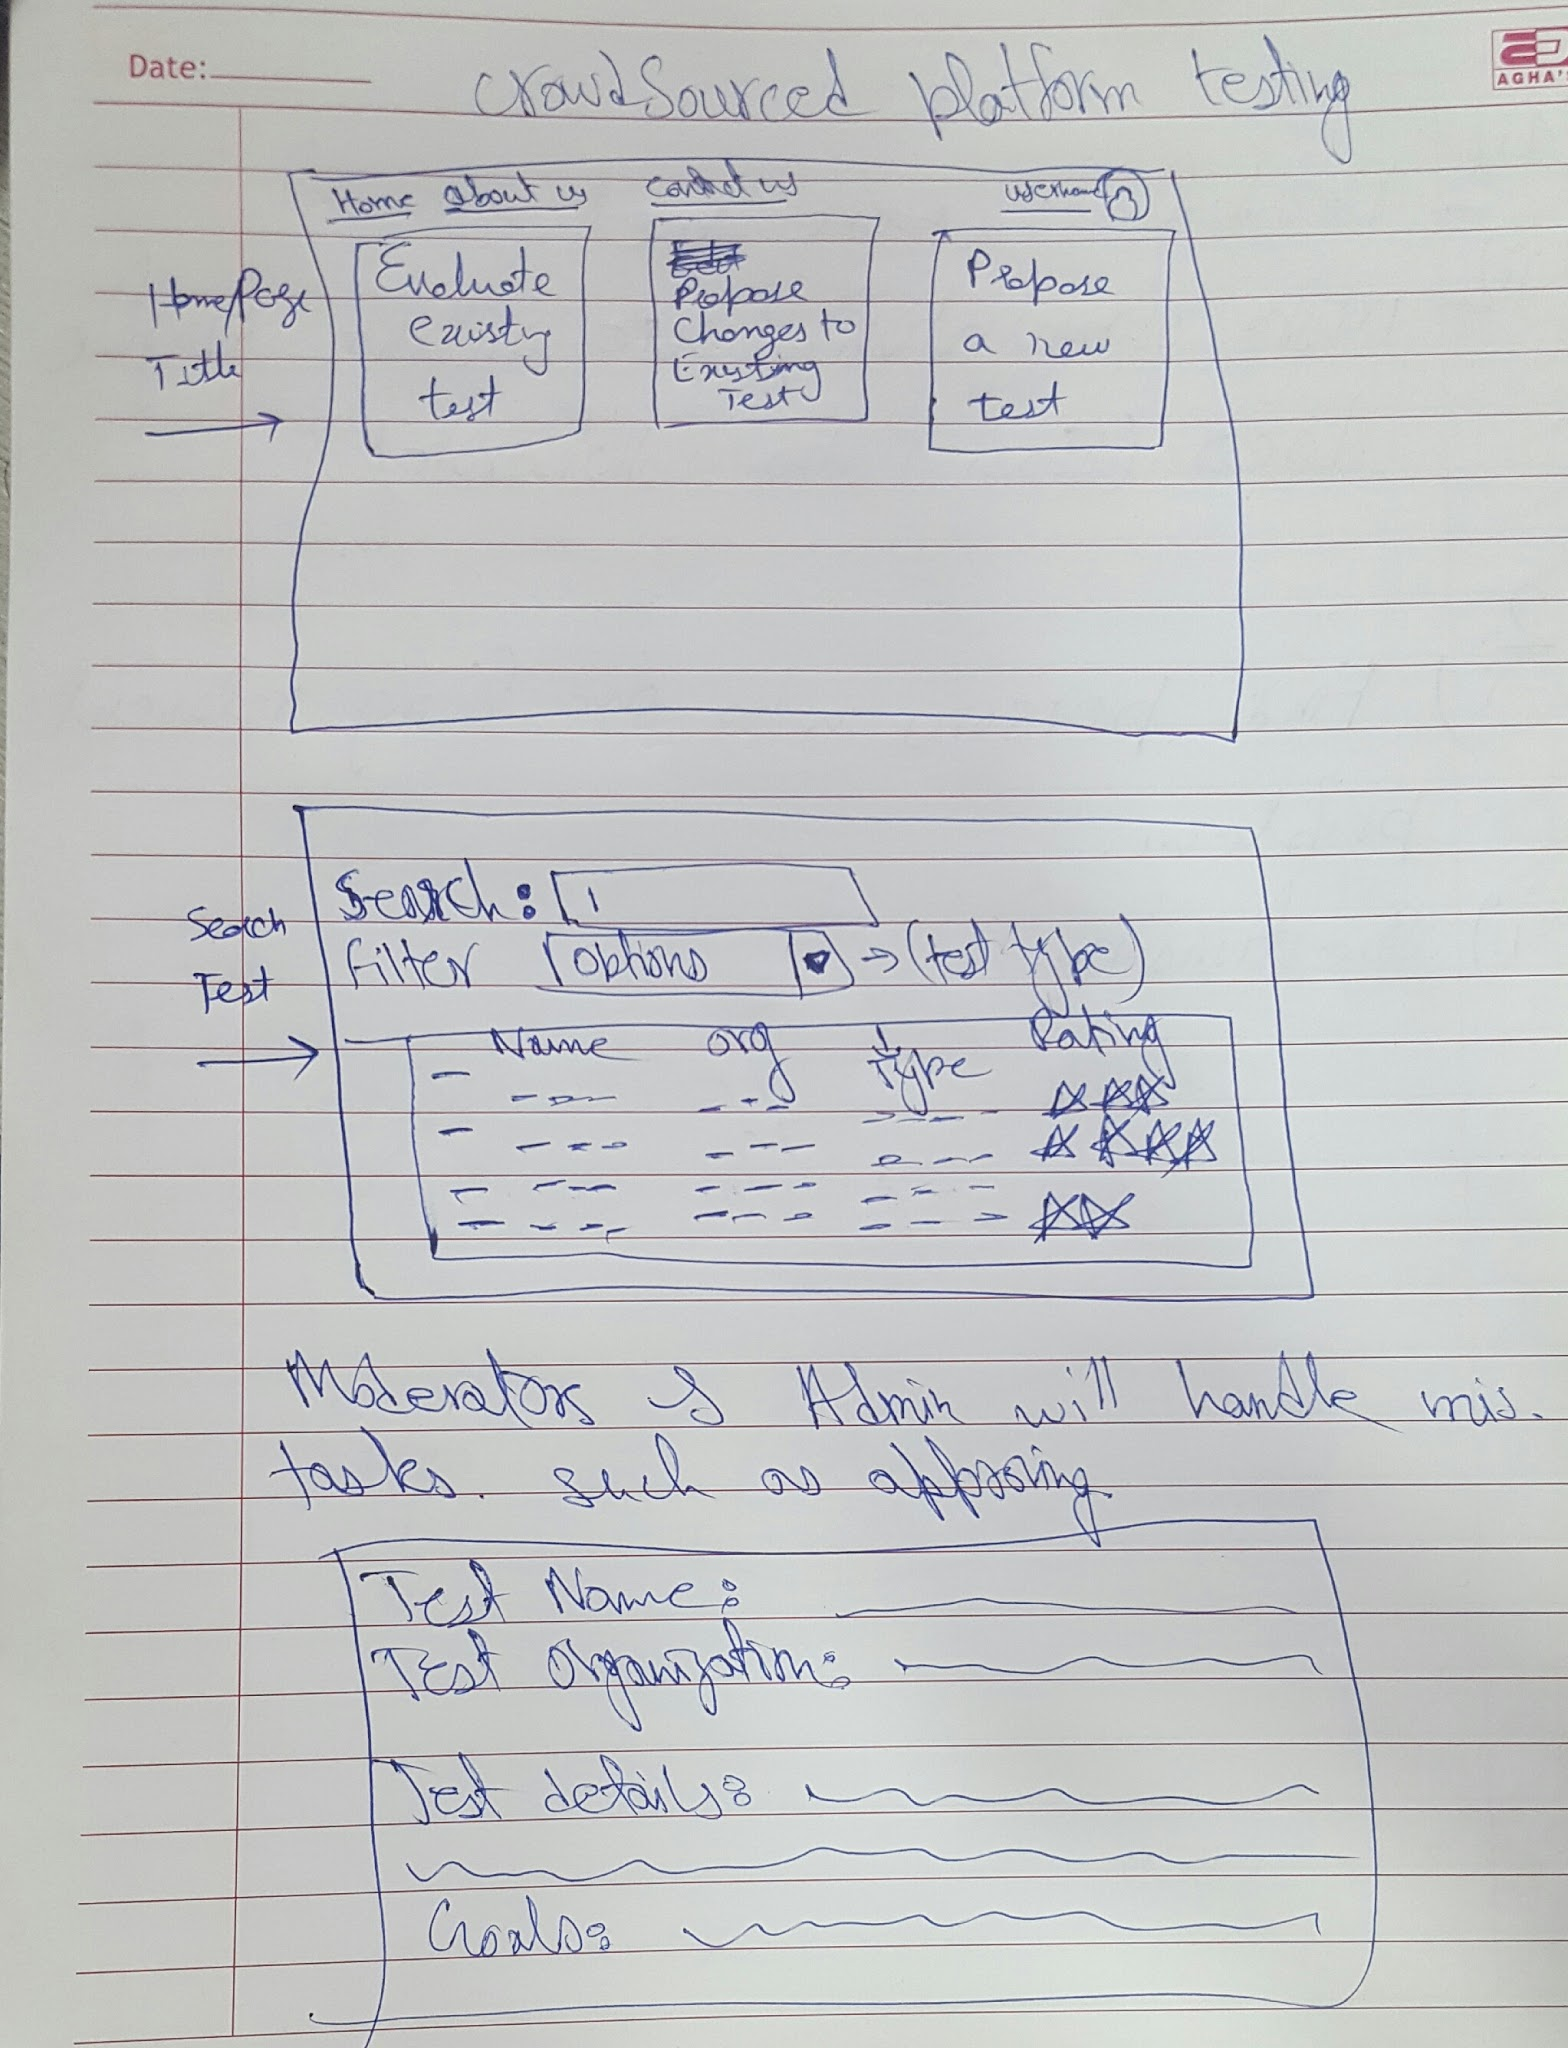 Date:
AGHA'S
crowdSourced platform testing
Home about us contact us username
HomePage
Title
Evaluate
existing
test
Propose
Changes to
Existing
Test
Propose
a new
test
Search
Test
Search:
Filter options → (test type)
Name org Type Rating
Moderators & Admin will handle mis.
tasks. such as approving.
Test Name:
Test Organization:
Test details:
Goals: